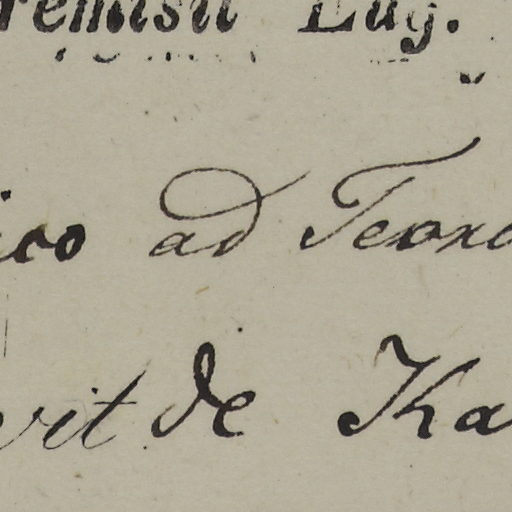 remisit Lug.
ico ad Teore
vit de Ka